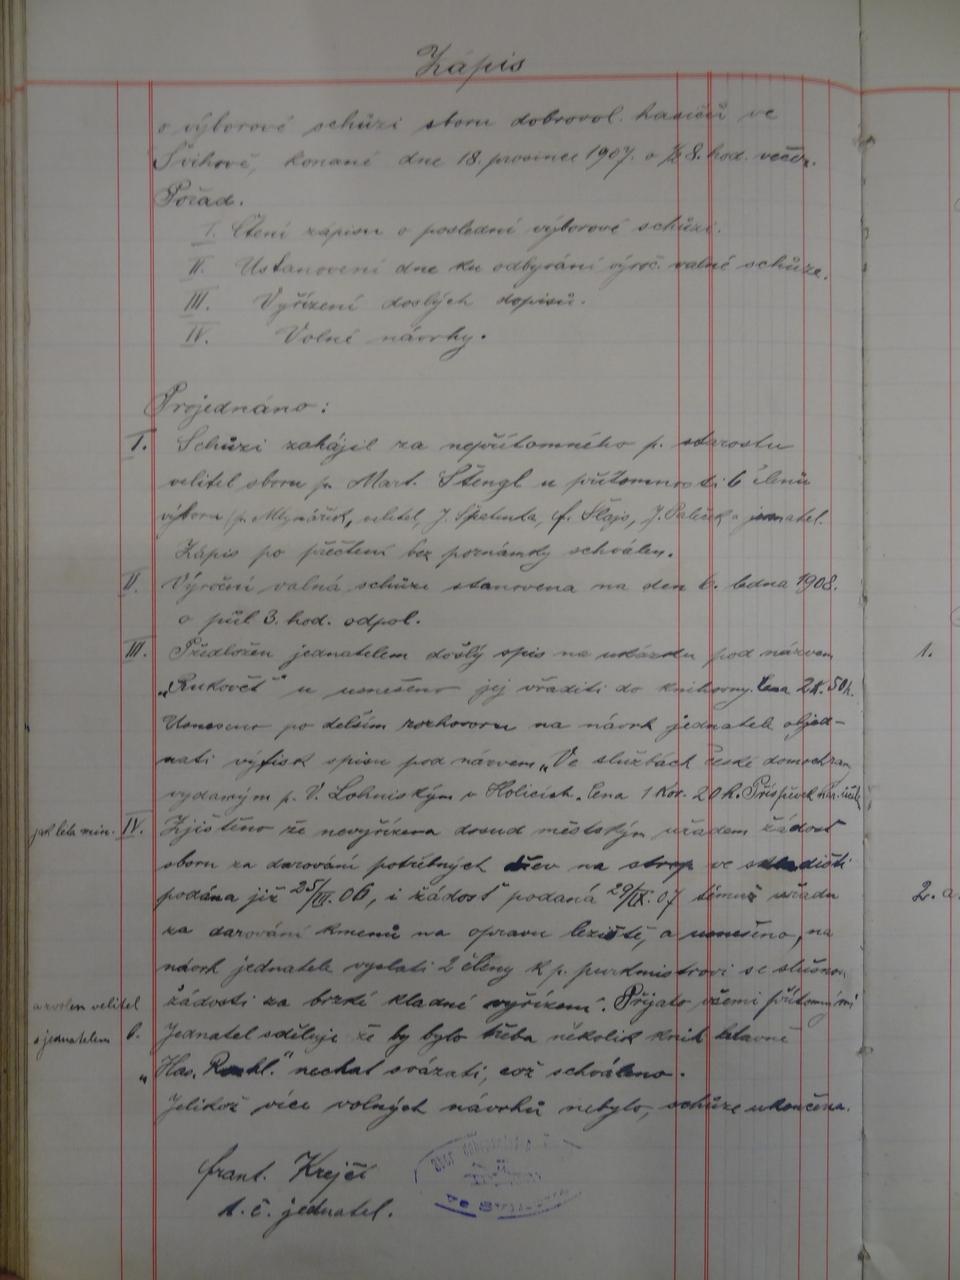 Zápis
o výborové schůzi sboru dobrovol. hasičů ve
Švihově, konané dne 18. prosince 1907. o 1/2 8. hod. večer.
Pořad.
I. Čtení zápisu o poslední výborové schůzi.
II. Ustanovení dne ku odbyvání výroč. valné schůze.
III. Vyřízení došlých dopisů.
IV. Volné návrhy.
Projednáno:
I. Schůzi zahájil za nepřítomného p. starostu
velitel sboru p. Mart. Štengl u přítomnosti 6 členů
výboru (p. Mlynářík, velitel, J. Špatenka, f. Šlajs, J. Paleček a jednatel.
Zápis po přečtení bez poznámky schválen.
II. Výroční valná schůze stanovena na den 6. ledna 1908.
o půl 3. hod. odpol.
III. Předložen jednatelem došlý spis na ukázku pod názvem
„Rukověť" u usnešeno jej vřaditi do knihovny. Cena 2 K. 50 h.
Usneseno po delším rozhovoru na návrh jednatele objed-
nati výtisk spisu pod názvem „Ve službách české domobrany
vydaným p. V. Lohniským v Holicích. Cena 1 Kor. 20 h. Příspěvek
jak léta min. IV. Zjištěno že nevyřízena dosud městským úřadem žádost
sboru za darování potřebných dřev na strop ve skladišti
podána již 25/III. 06, i žádost podaná 29/IX. 07 témuž úřadu
za darování kmenů na opravu leziště, a usnešeno, na
návrh jednatele vyslati 2 členy k p. purkmistrovi se slušnou
žádostí za brzké kladné vyřízení. Přijato všemi přítomnými
a zvolen velitel
s jednatelem 6. Jednatel sděluje že by bylo třeba několik knih hlavně
„Has. Rozhl." nechat svázati, což schváleno.
Jelikož více volných návrhů nebylo, schůze ukončena.
frant. Krejčí
t. č. jednatel.
Sbor dobrovolných
ve Švihově
1.
2. a